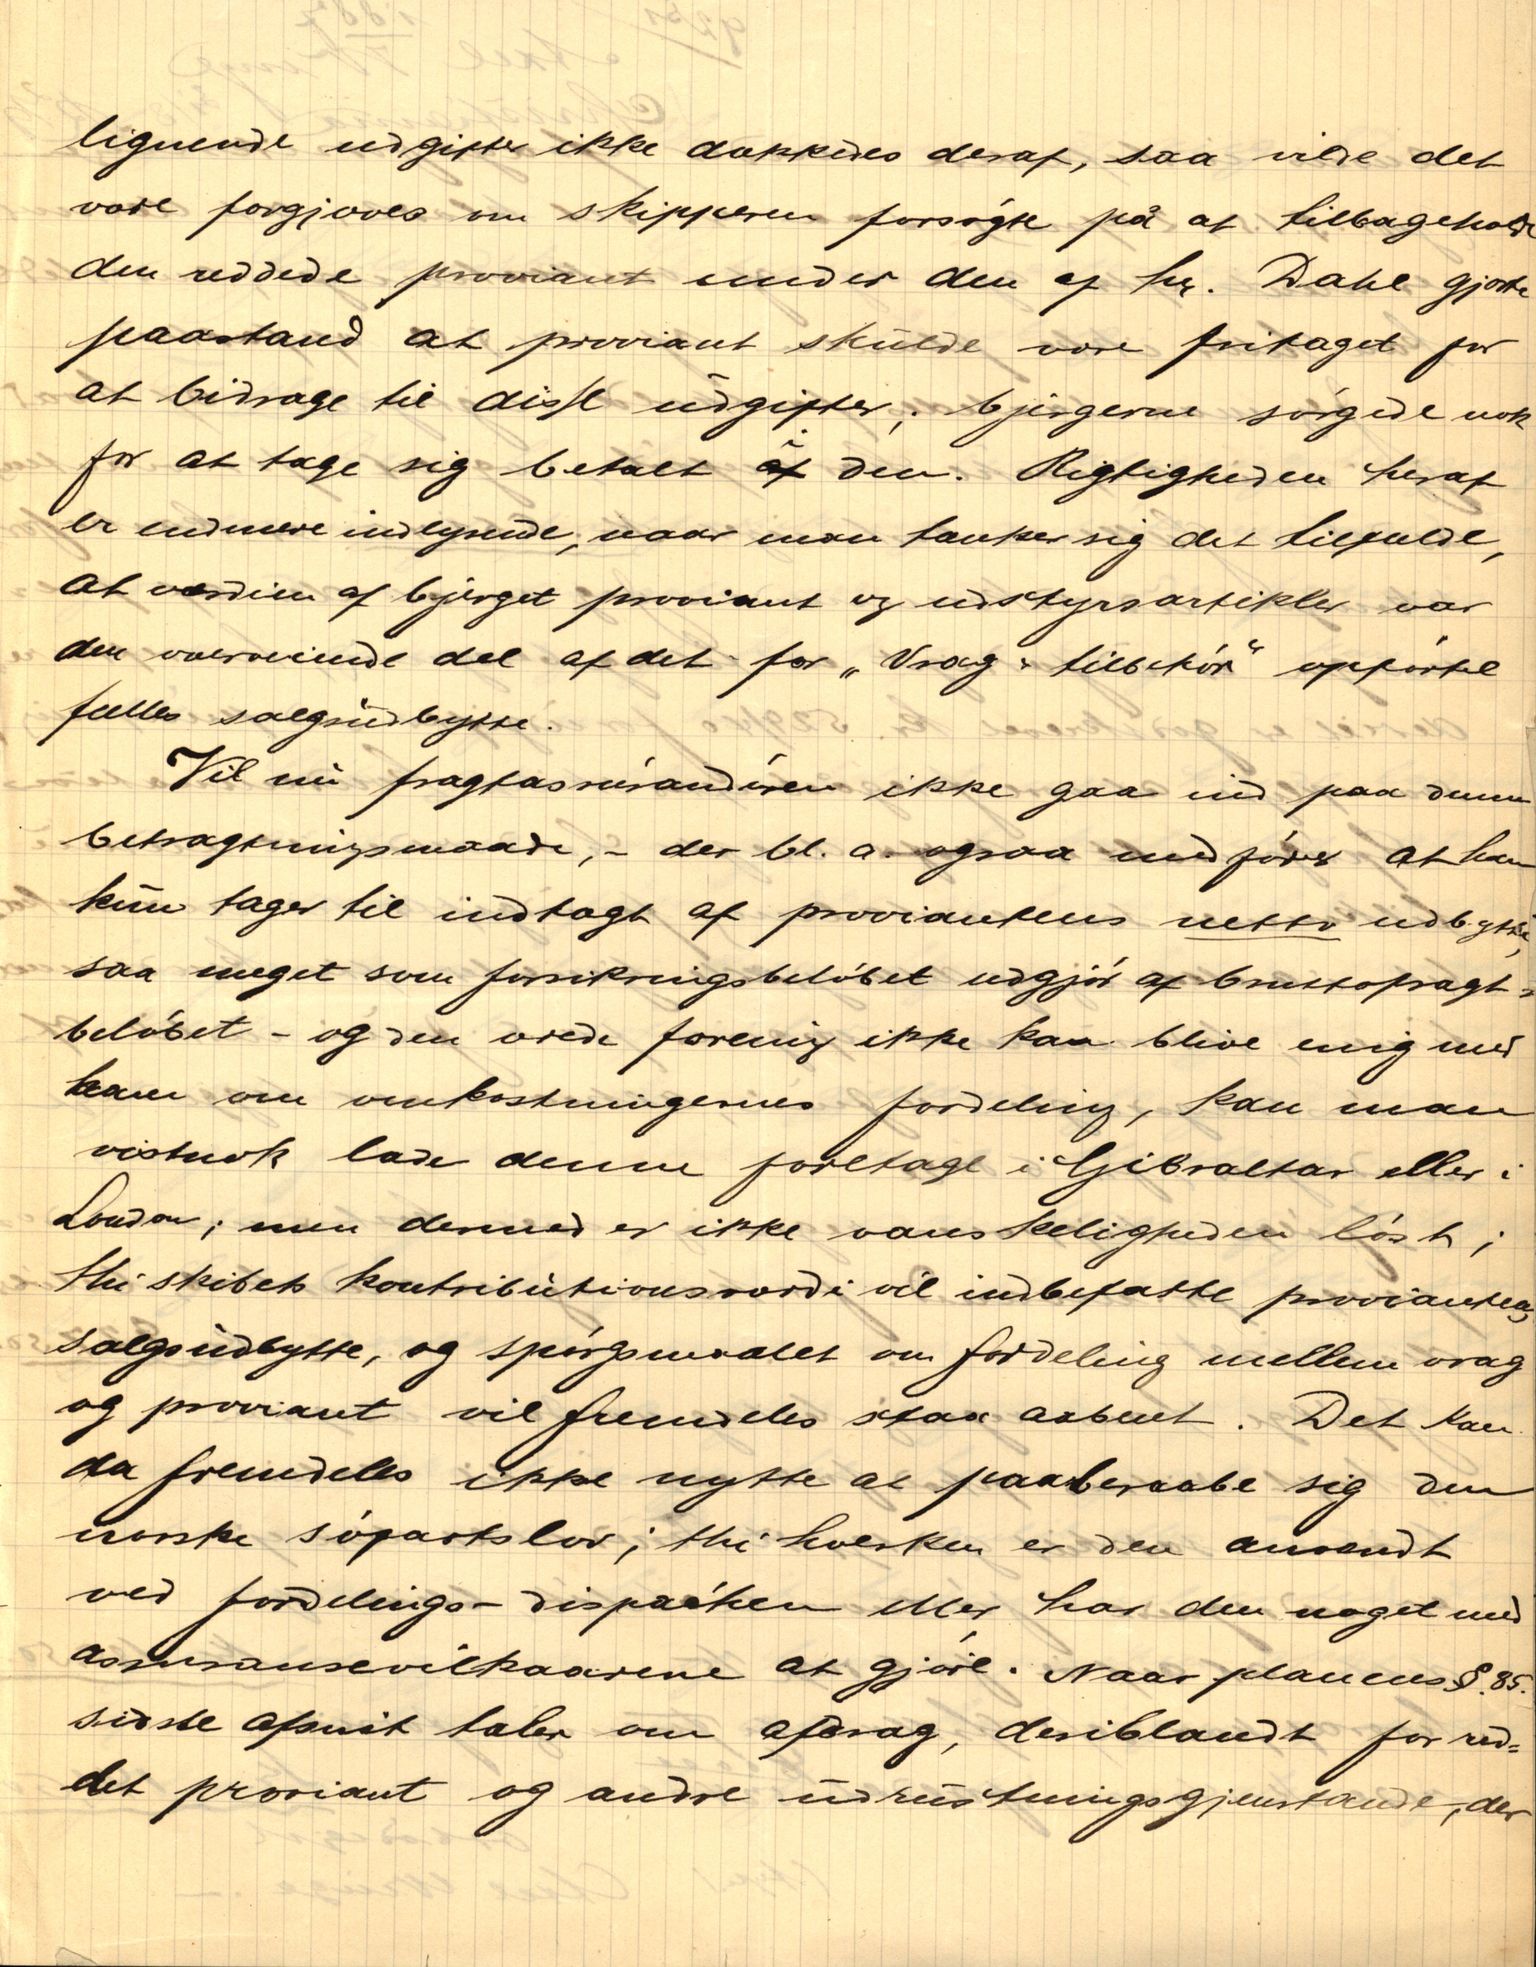 lignende udgifter ikke dækkedes deraf, saa vilde det
være forgjæves om skipperen forsøgte på at tilbageholde
den reddede proviant under den af hr. Dahl gjorte
paastand at proviant skulde være fritaget for
at bidrage til disse udgifter; bjergerne sørgede nok
for at tage sig betalt af den. Rigtigheden heraf
er endmere indlysende, naar man tænker sig det tilfælde,
at værdien af bjerget proviant og udstyrsartikler var
den overveiende del af det for „Vrag & tilbehør“ opførte
fælles salgsudbytte.
Vil nu fragtassurandøren ikke gaa ind paa denne
betragtningsmaade, - der bl. a. ogsaa medfører at han
kun tager til indtægt af proviantens netto udbytte,
saa meget som forsikringsbeløbet udgjør af bruttofragt-
beløbet - og den ærede forening ikke kan blive enig med
ham om omkostningernes fordeling, kan man
vistnok lade denne foretage i Gibraltar eller i
London; men dermed er ikke vanskeligheden løst;
thi skibets kontributionsværdi vil indbefatte proviantens
salgsudbytte, og spørgsmaalet om fordeling mellem vrag
og proviant vil fremdeles staa aabent. Det kan
da fremdeles ikke nytte at paaberaabe sig den
norske søfartslov; thi hverken er den anvendt
ved fordelings-dispachen eller har den noget med
assuransevilkaarene at gjøre. Naar planens § 85.
sidste afsnit taler om afdrag, deriblandt for red=
det proviant og andre udrustningsgjenstande, der